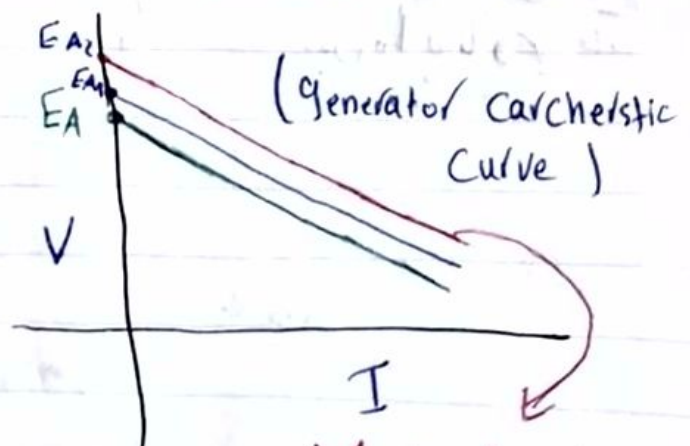 EA2
EA1
EA
(Generator Carcherstic
Curve)
V
I